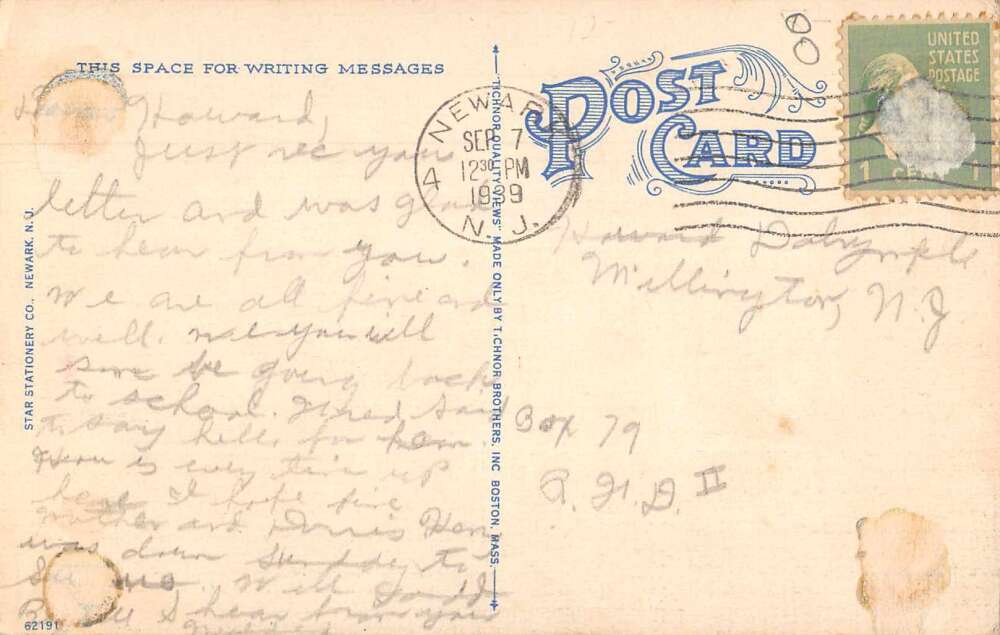 THIS SPACE FOR WRITING MESSAGES
Howard,
Just rec your
letter and was glad
to hear from you.
We are all fine and
well. you will
soon be going back
to school. said
to say hello for
is every up
here I hope fine
mother and Doris
was down Sunday to
see me. Well
I hear from you
62191
STAR STATIONERY CO., NEWARK, N. J.
"TICHNOR QUALITY VIEWS" MADE ONLY BY TICHNOR BROTHERS, INC BOSTON, MASS.
POST
CARD
NEWARK
4
SEP 7
12 30 PM
1939
N. J.
UNITED
STATES
POSTAGE
1 CENT 1
Howard Dalrymple
Millington, N. J
Box 79
R. F. D. II